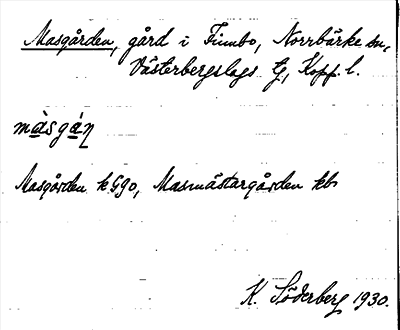 Masgården, gård i Finnbo, Norrbärke sn,
Västerbergslags tg, Kopp. l.
màsgán
Masgården kGgo, Masmästargården kb
K. Söderberg 1930.